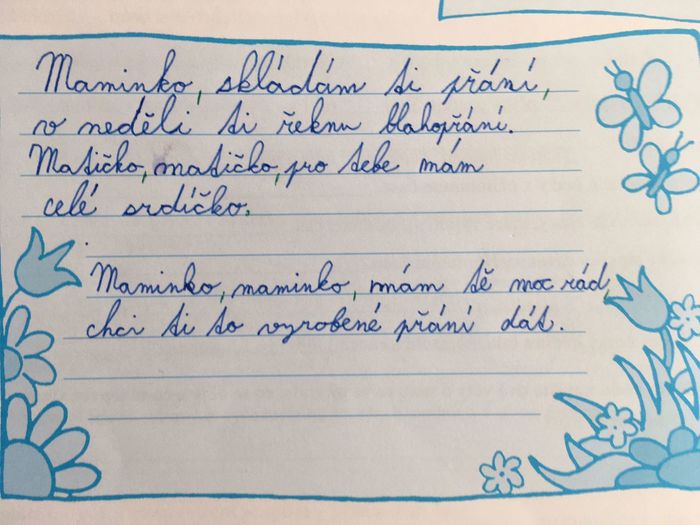 Maminko, skládám ti přání,
v neděli ti řeknu blahopřání.
Matičko, matičko, pro tebe mám
celé srdíčko.
Maminko, maminko, mám tě moc rád,
chci ti to vyrobené přání dát.